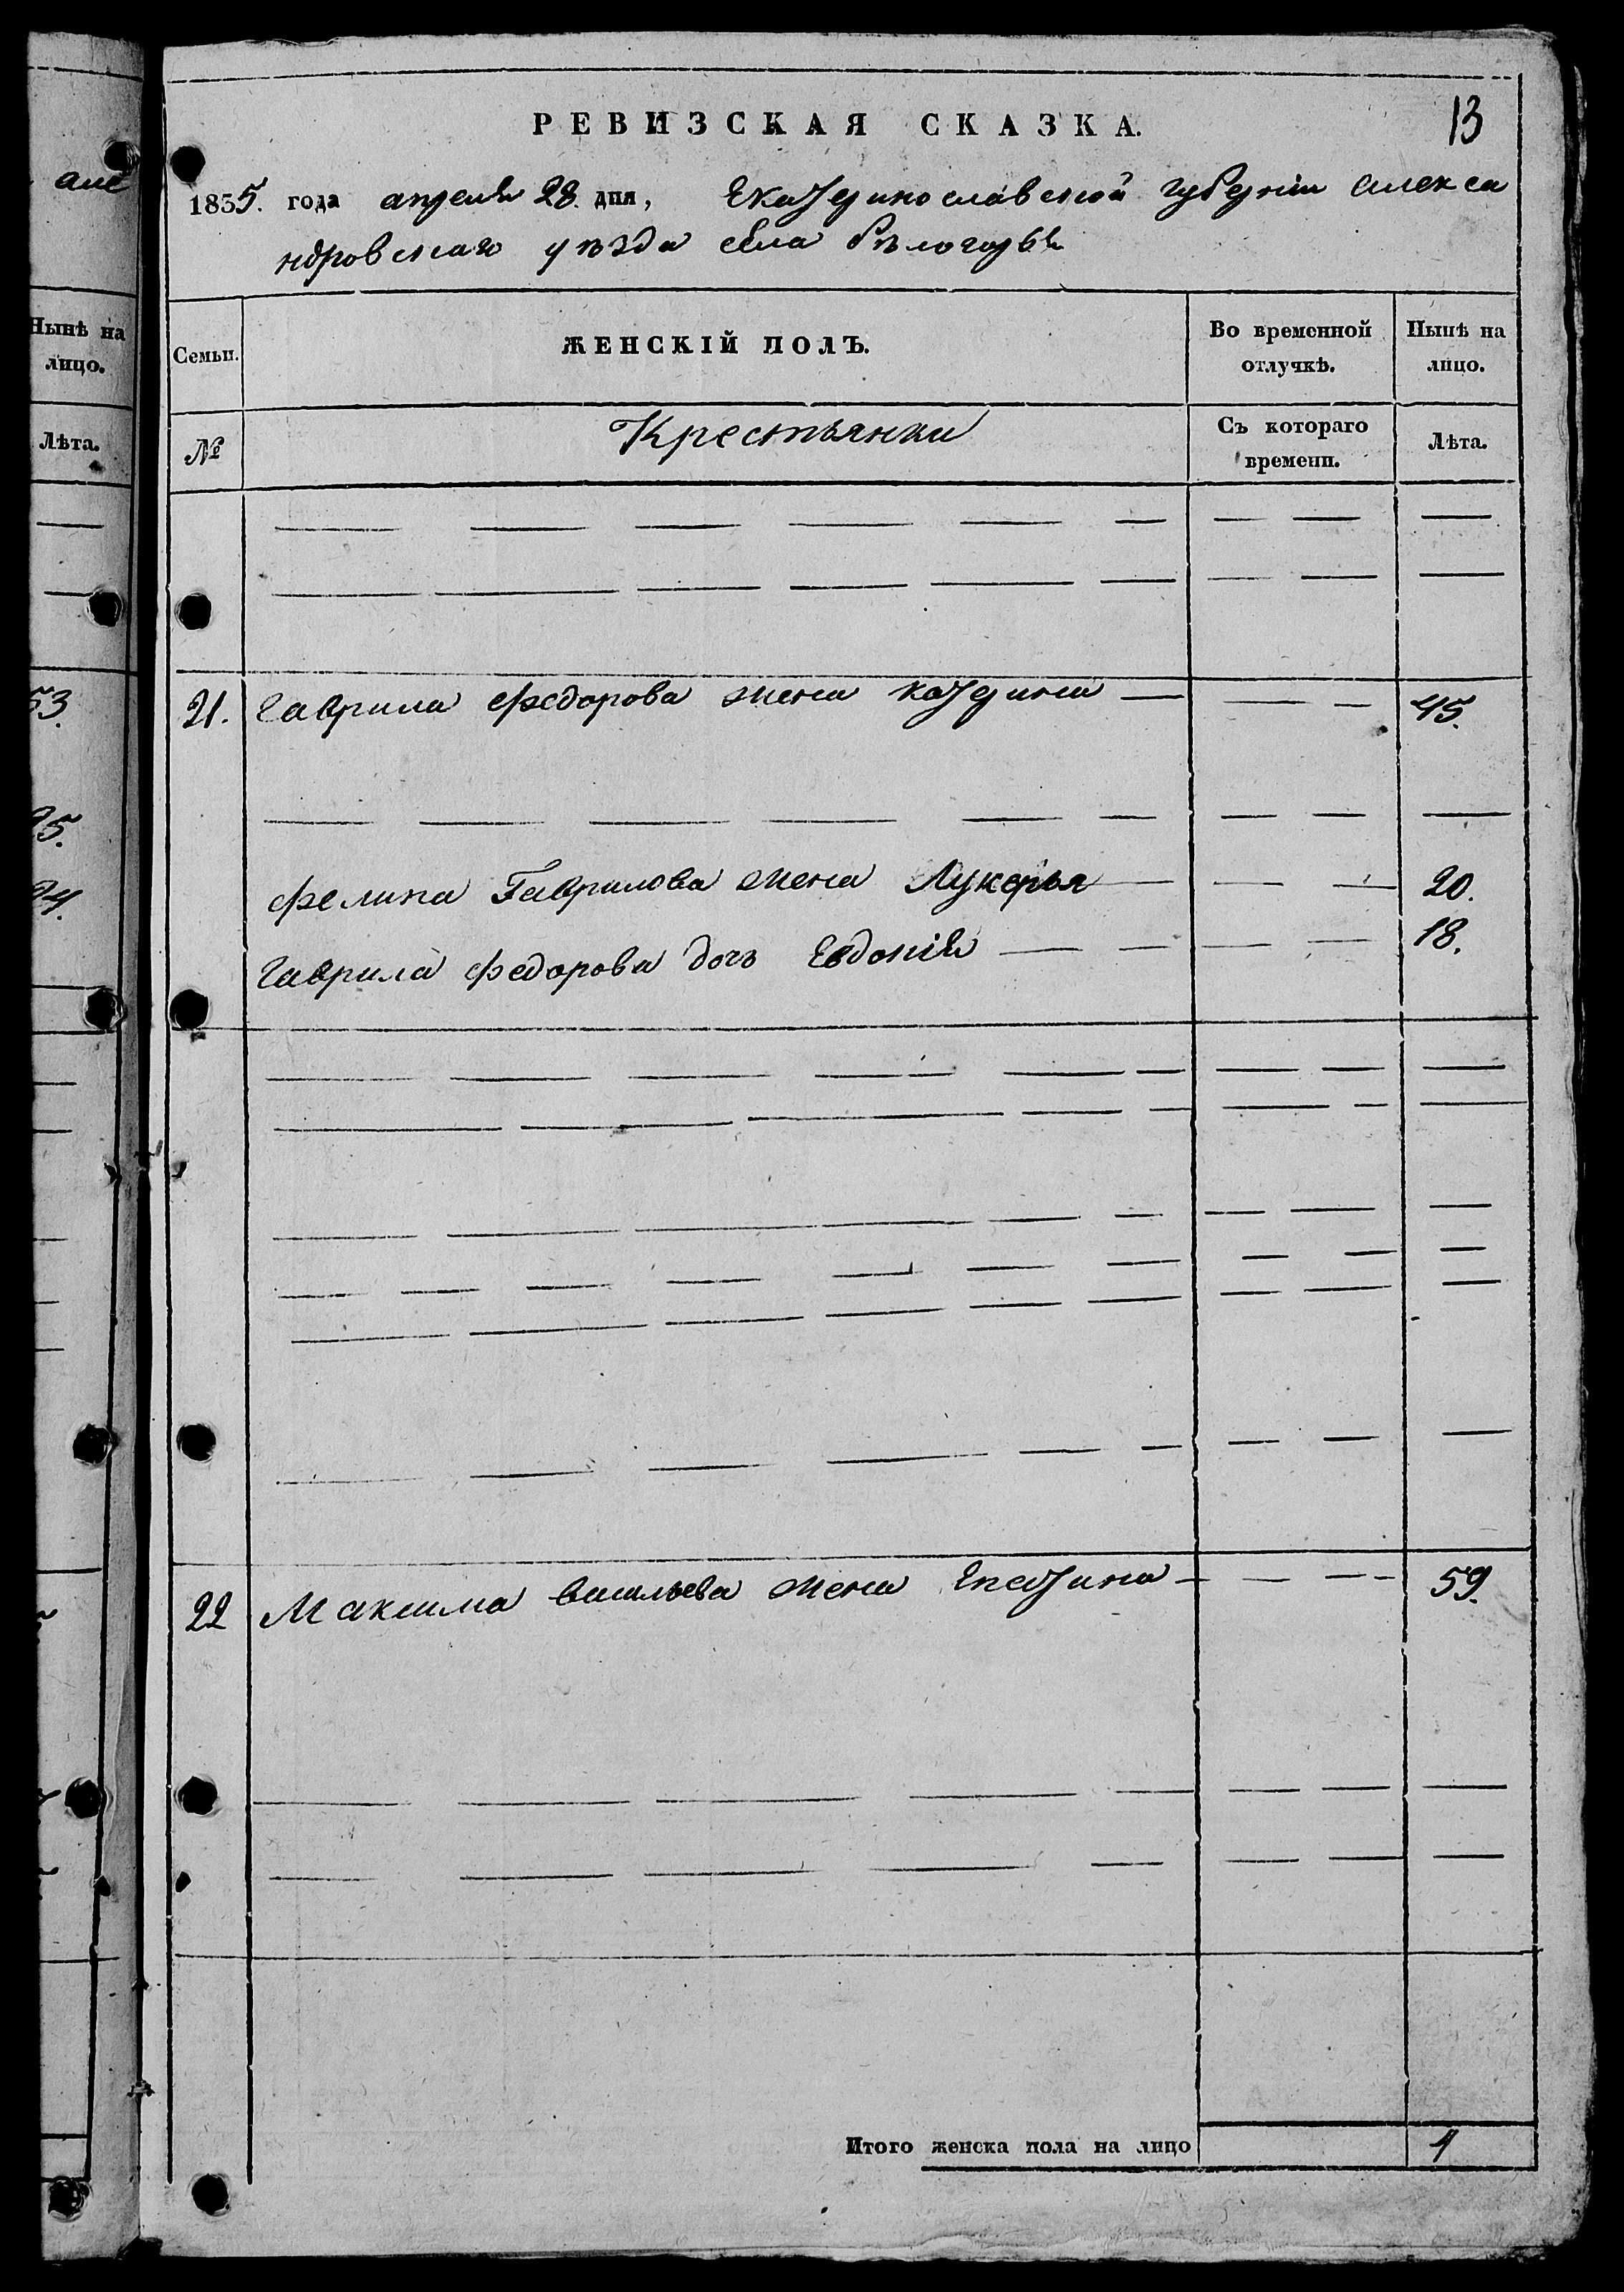 ане
Нынѣ на
лицо.
Лѣта.
53.
25.
24.
13
РЕВИЗСКАЯ СКАЗКА.
1835. года апреля 28. дня, Екатеринославской губерніи Алекса
ндровскаго уѣзда села бѣлогорья
Семьи. ЖЕНСКІЙ ПОЛЪ. Во временной отлучкѣ. Нынѣ на лицо.
№ Крестьянки Съ котораго времени. Лѣта.
21. Гаврила Федорова жена катерина 45.
Фелипа Гаврилова жена Лукерья 20.
Гаврила Федорова дочь Евдокія 18.
22 Максима васильева жена 59.
Итого женска пола на лицо 4